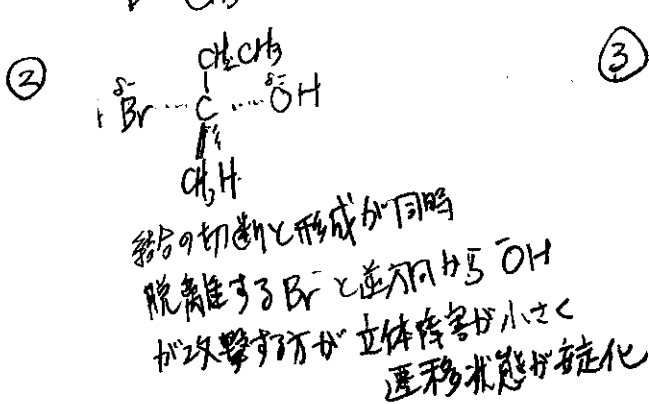 ②
③
CH₂CH₃
δ- δ-
Br ···· C ···· OH
CH₃ H
結合の切断と形成が同時
脱離するBr⁻と逆方向から ⁻OH
が攻撃する方が立体障害が小さく
遷移状態が安定化